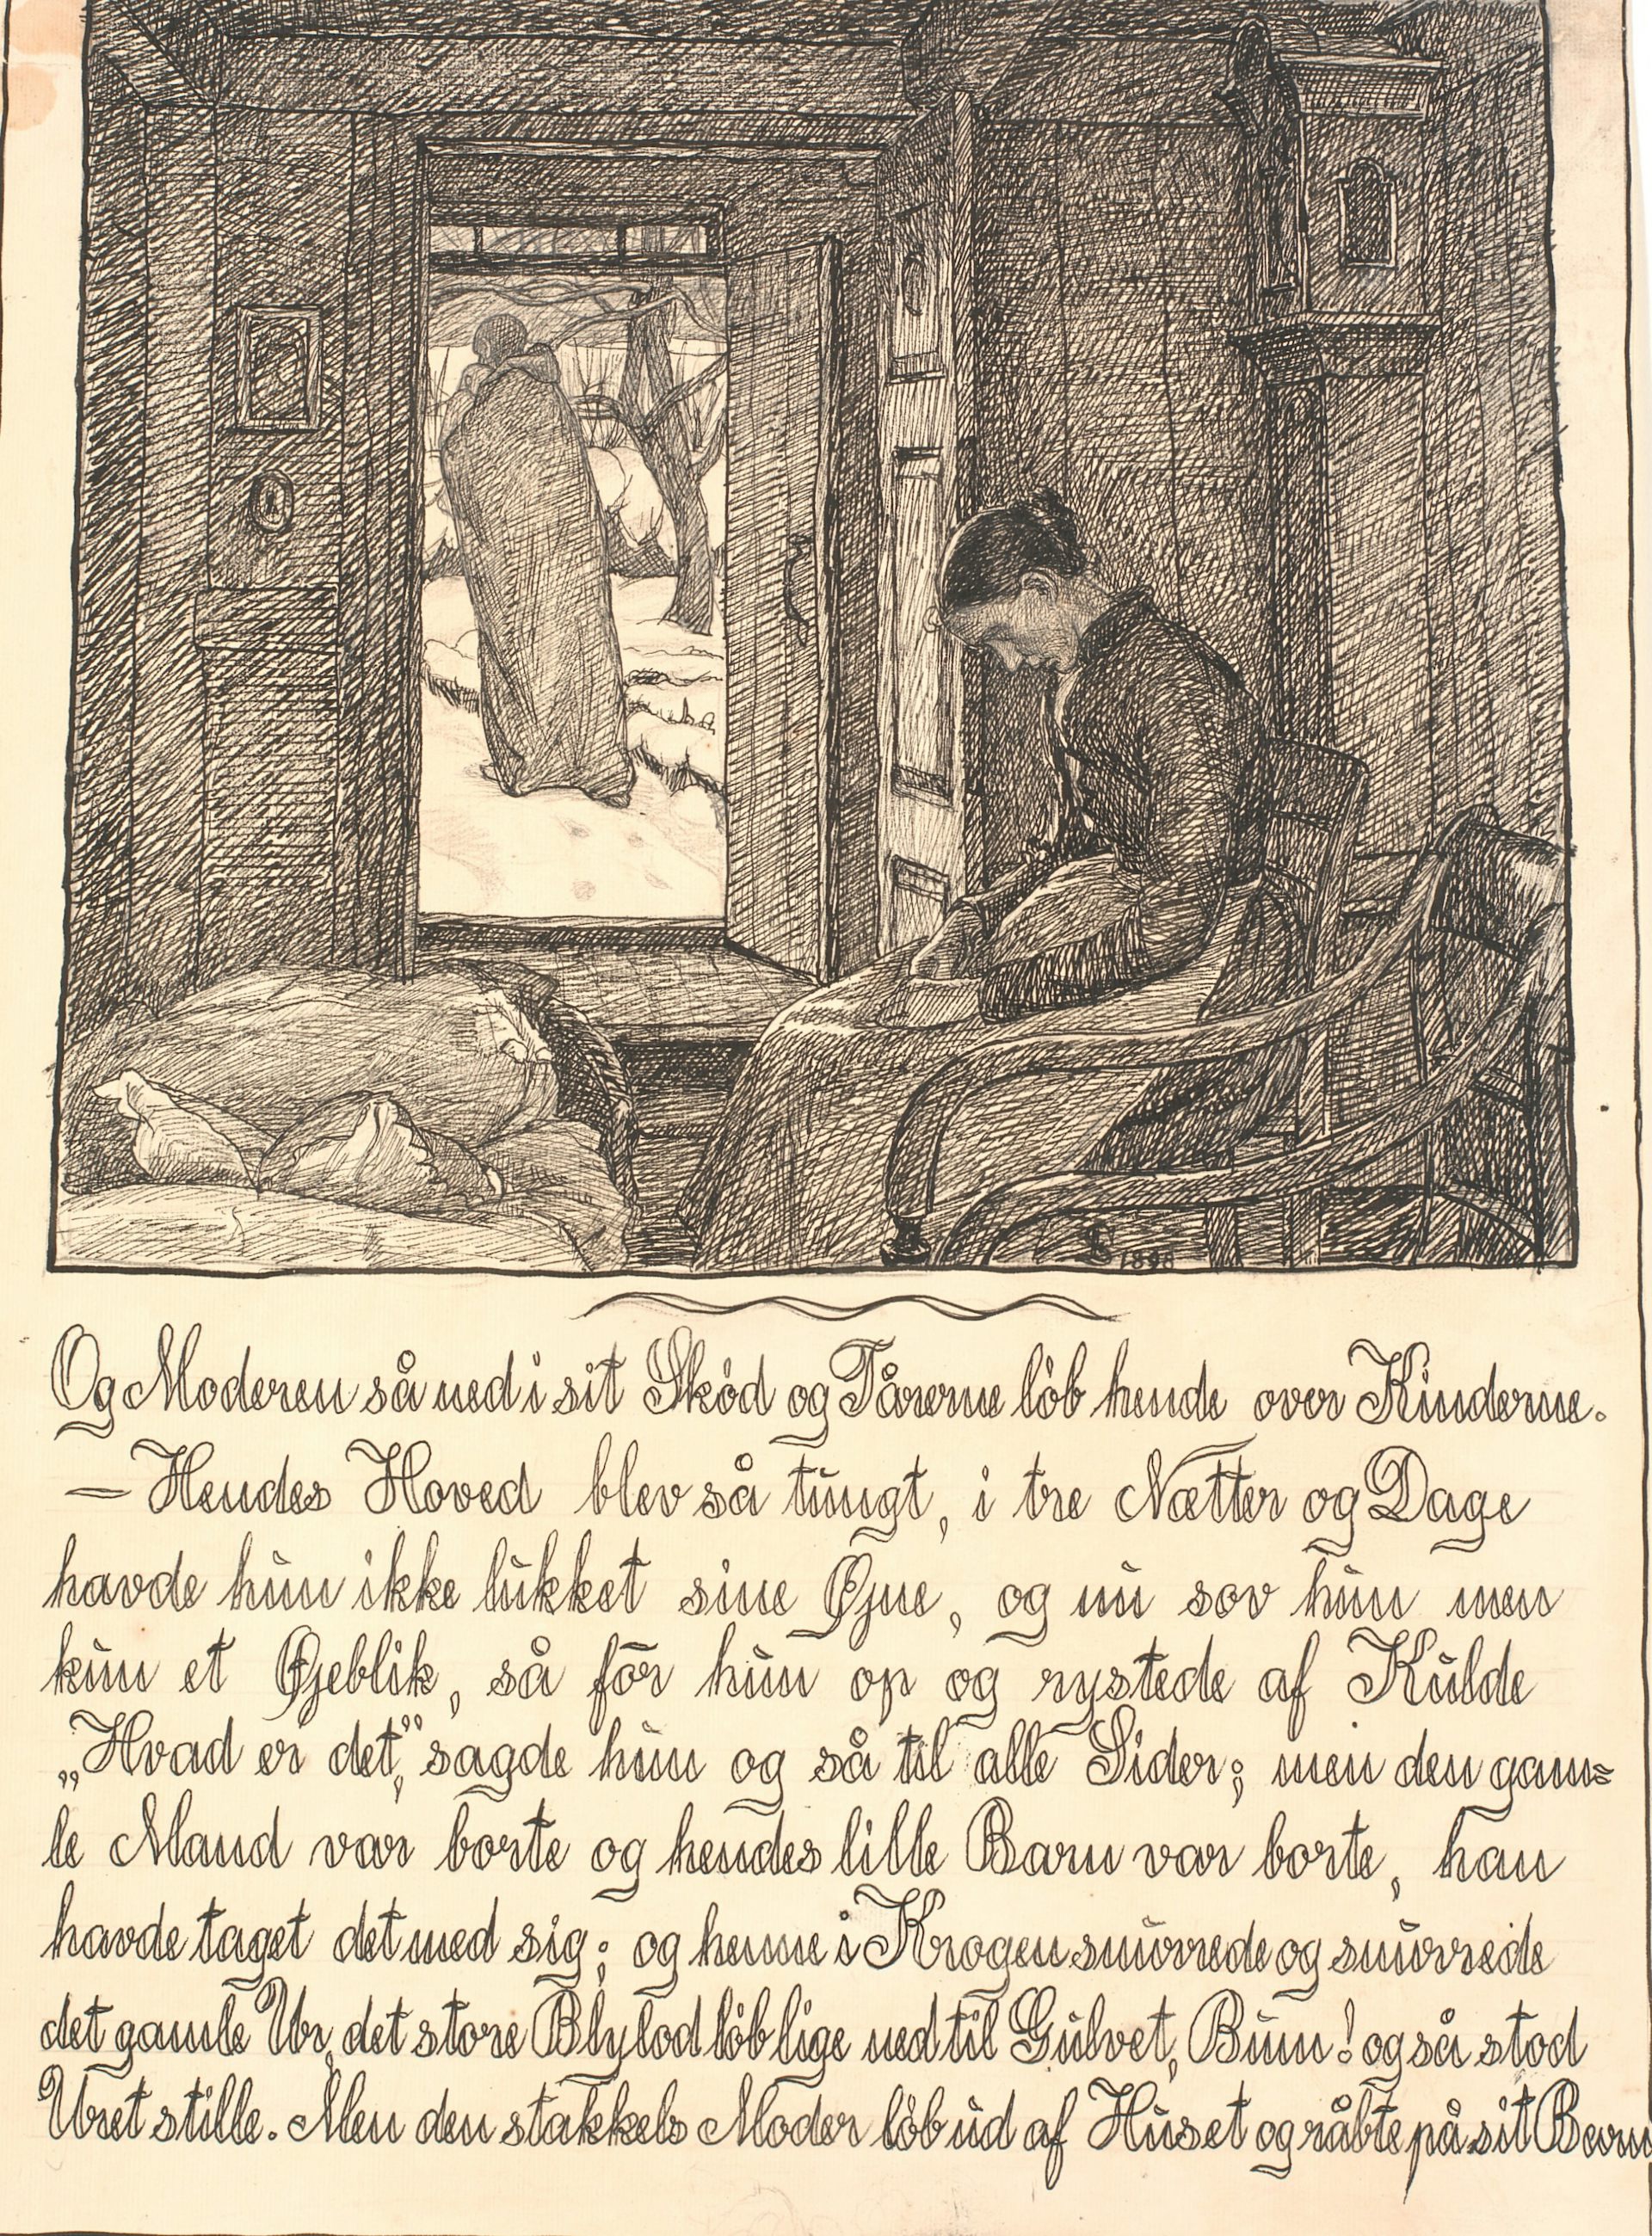 S 1898
Og Moderen så ned i sit Skød og Tårerne løb hende over Kinderne.
— Hendes Hoved blev så tungt, i tre Nætter og Dage
havde hun ikke lukket sine Øjne, og nu sov hun men
kun et Øjeblik, så for hun op og rystede af Kulde
„Hvad er det,” sagde hun og så til alle Sider; men den gam=
le Mand var borte og hendes lille Barn var borte, han
havde taget det med sig; og henne i Krogen snurrede og snurrede
det gamle Ur, det store Blylod løb lige ned til Gulvet, Bum! også stod
Uret stille. Men den stakkels Moder løb ud af Huset og råbte på sit Barn